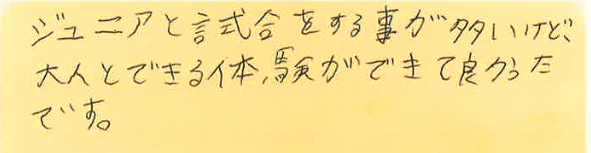 ジュニアと試合をする事が多いけど、
大人とできる体験ができて良かった
です。